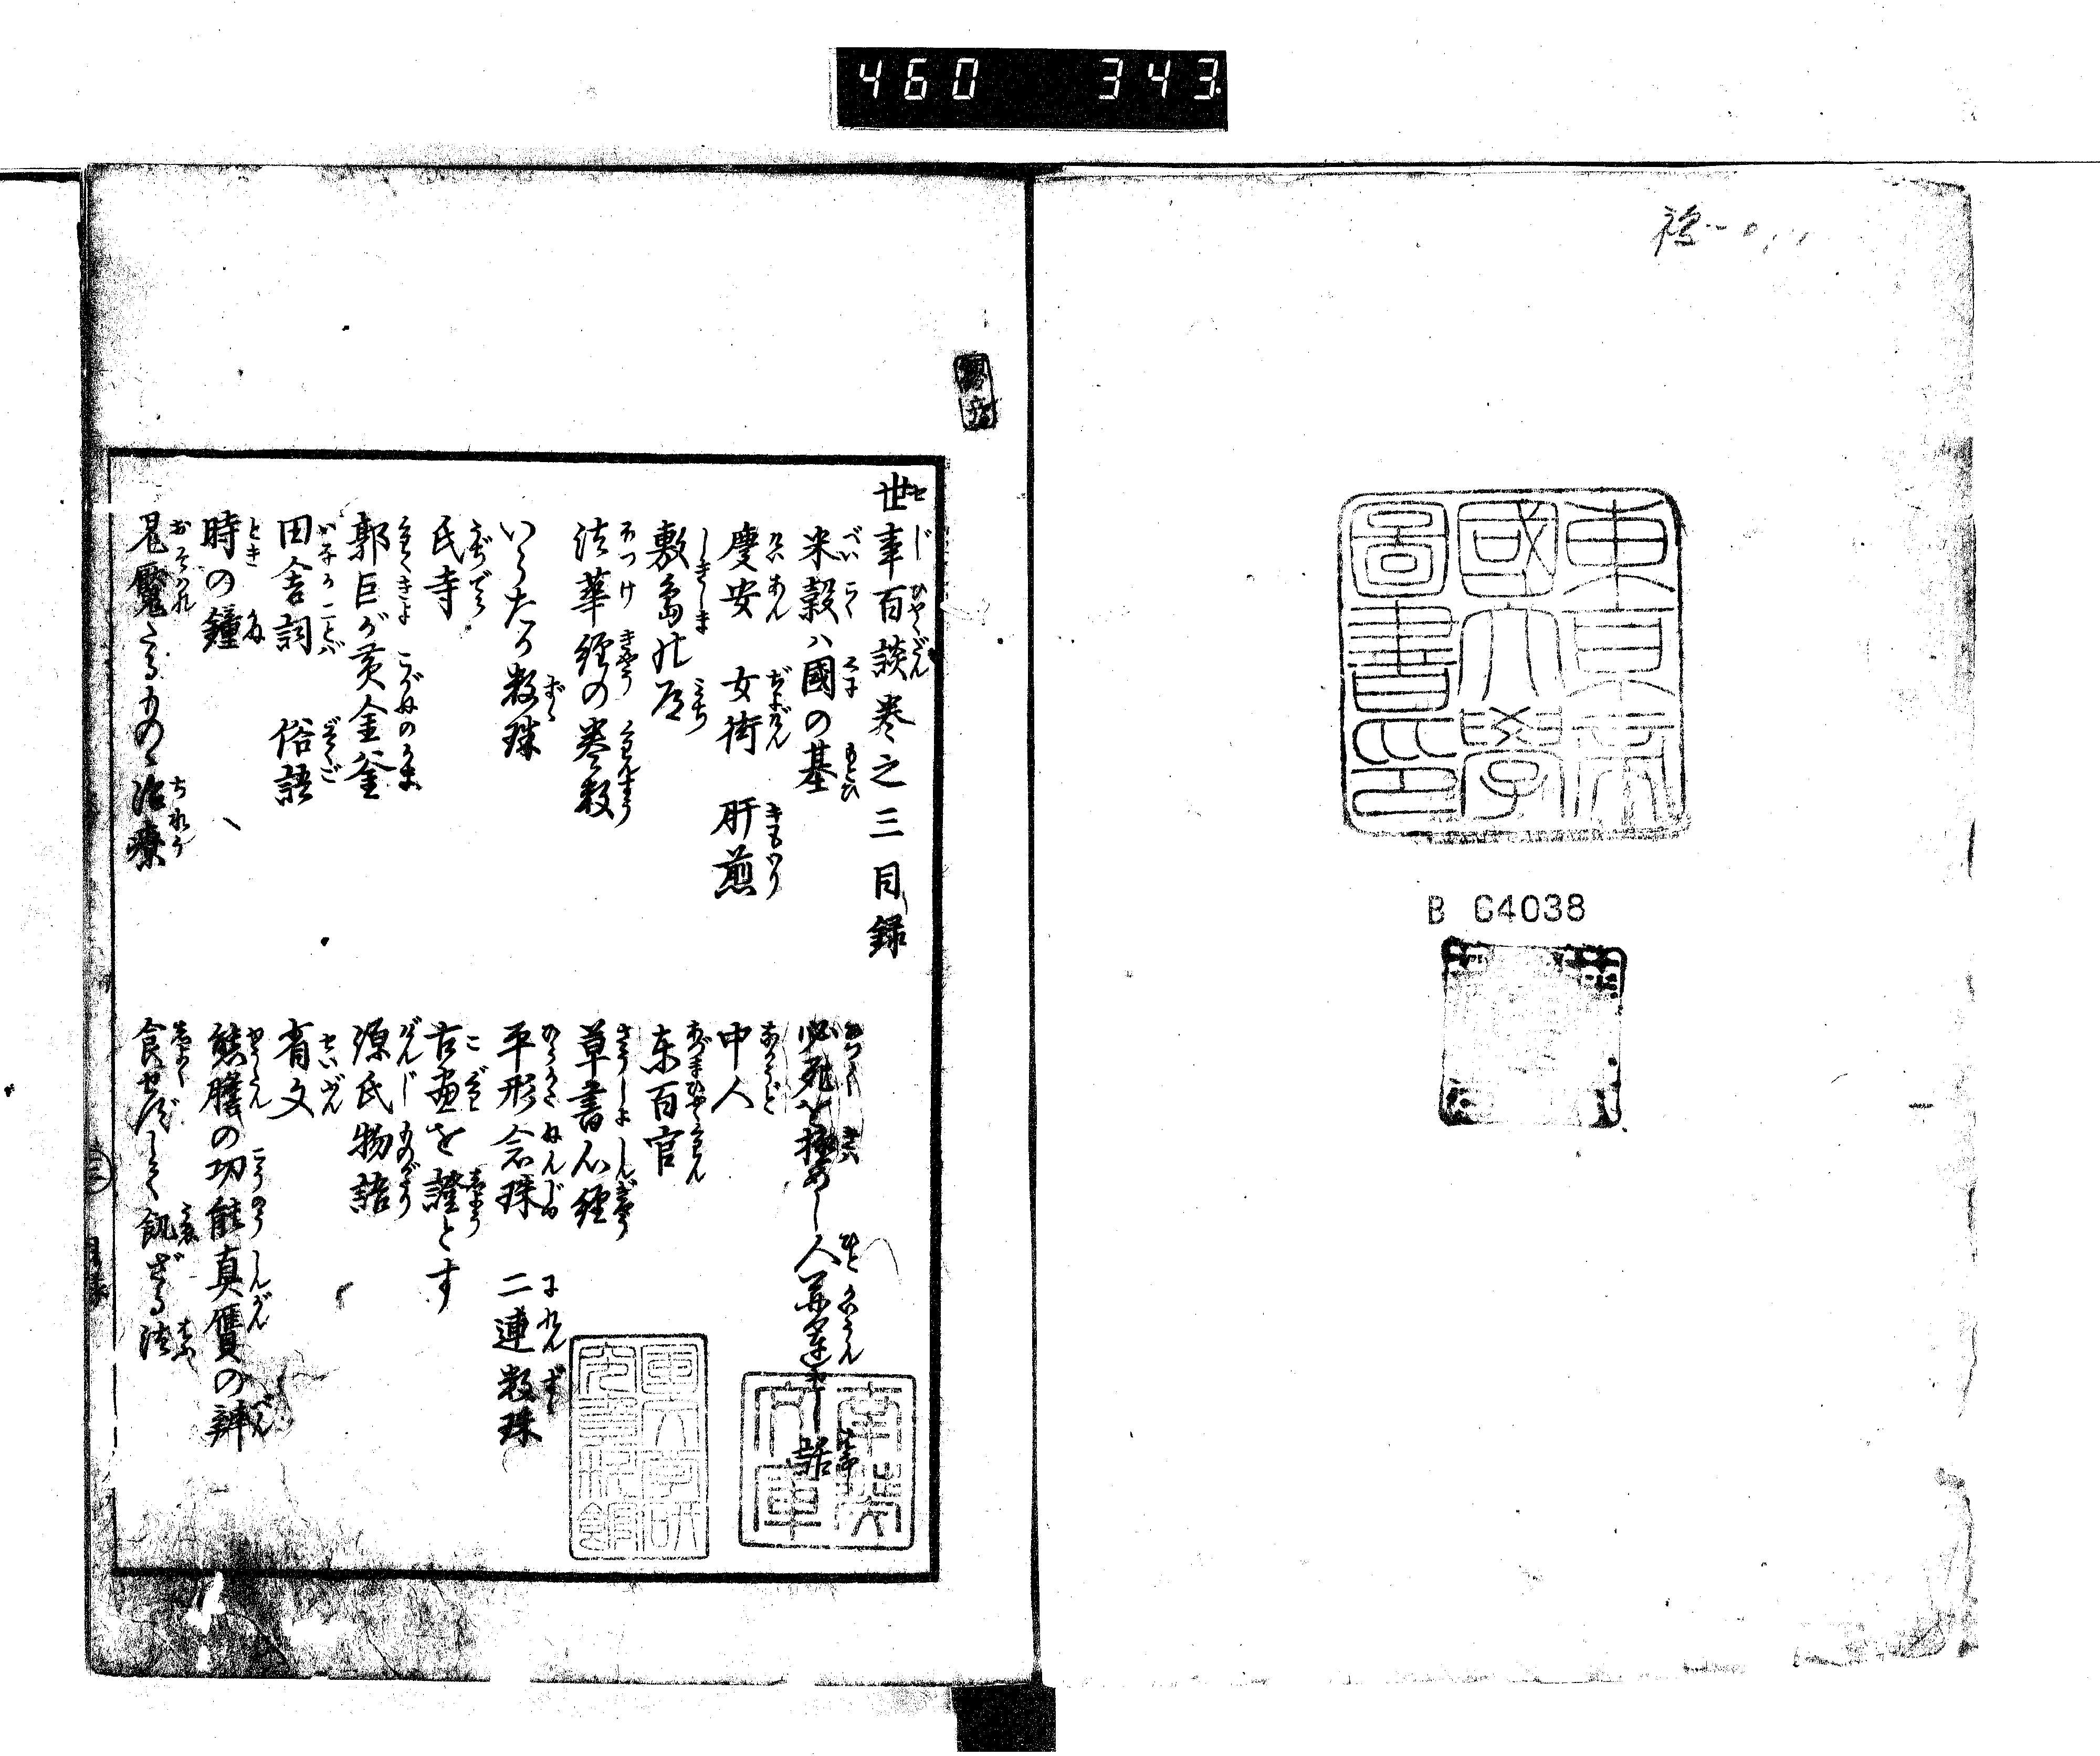 460 343
東京帝
國大學
圖書印
B 64038
世事百談巻之三目録
米穀ハ國の基
慶安 女衒 肝煎
敷島の道
法華経の巻数
いらたか数珠
氏寺
郭巨が黄金釜
田舎詞 俗語
時の鐘
鬼魘たるものゝ治療
必死を極めし人
話
中人
東百官
草書心経
平形念珠 二連数珠
古画を證とす
源氏物語
省文
熊膽の功能真贋の辨
食せずして飢ざる法
南葵
文庫
三
目録